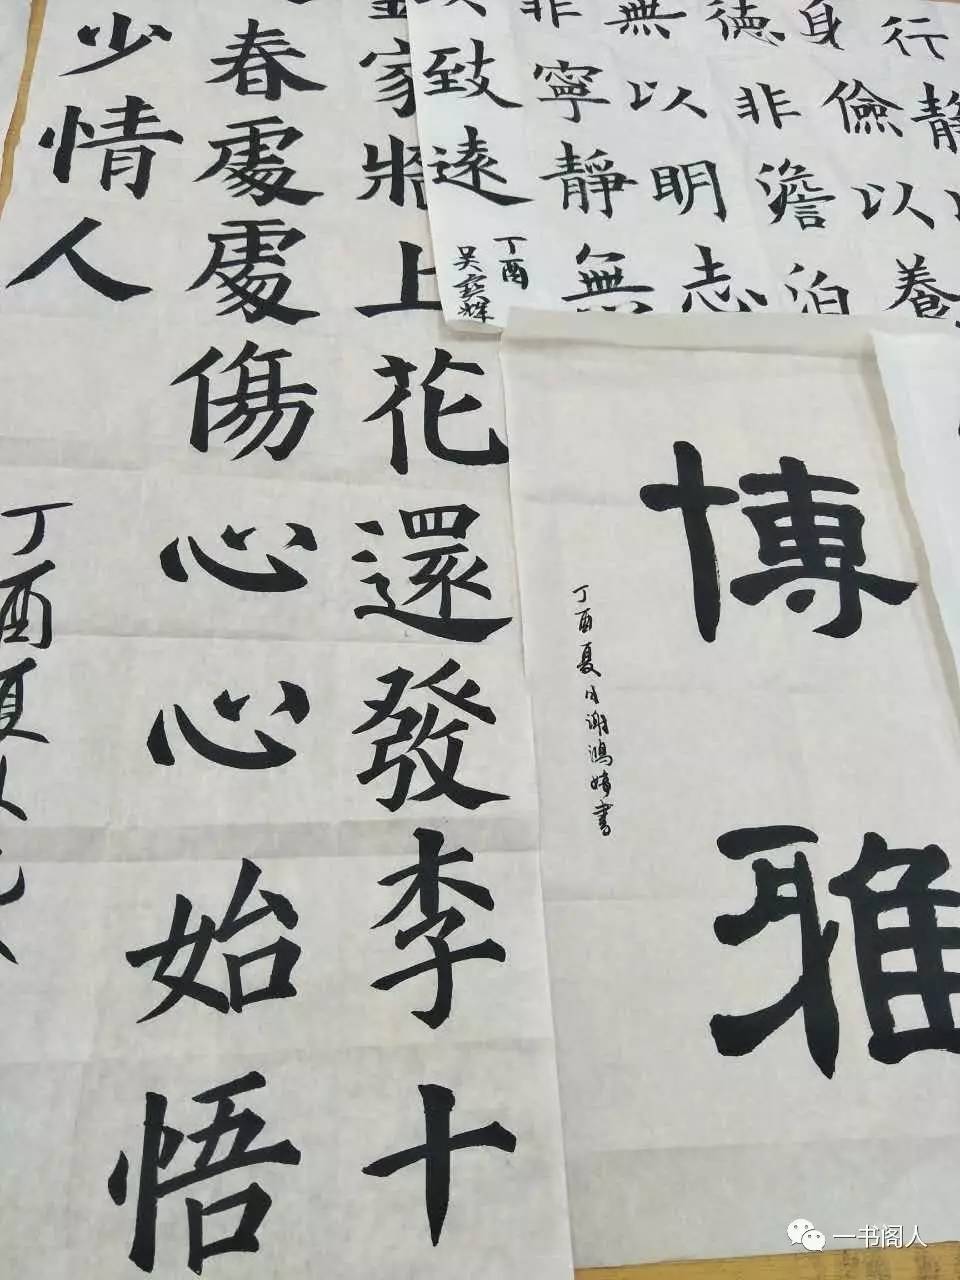 行靜以
身儉以養
德非澹泊
無以明志
非寧靜無
致遠
丁酉
吴辉
博雅
丁酉夏月谢鴻婧書
家將上花還發李十
春處處傷心心始悟
少情人
丁酉夏
一书阁人